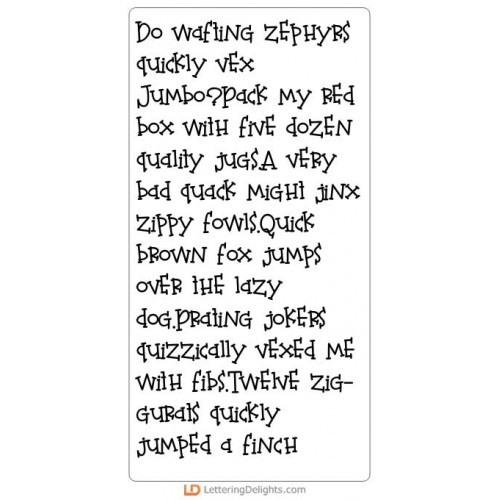 Do wafting zephyrs
quickly vex
Jumbo?Pack my red
box with five dozen
quality jugs.A very
bad quack might jinx
zippy fowls.Quick
brown fox jumps
over the lazy
dog.Prating jokers
quizzically vexed me
with fibs.Twelve zig-
gurats quickly
jumped a finch
LD LetteringDelights.com